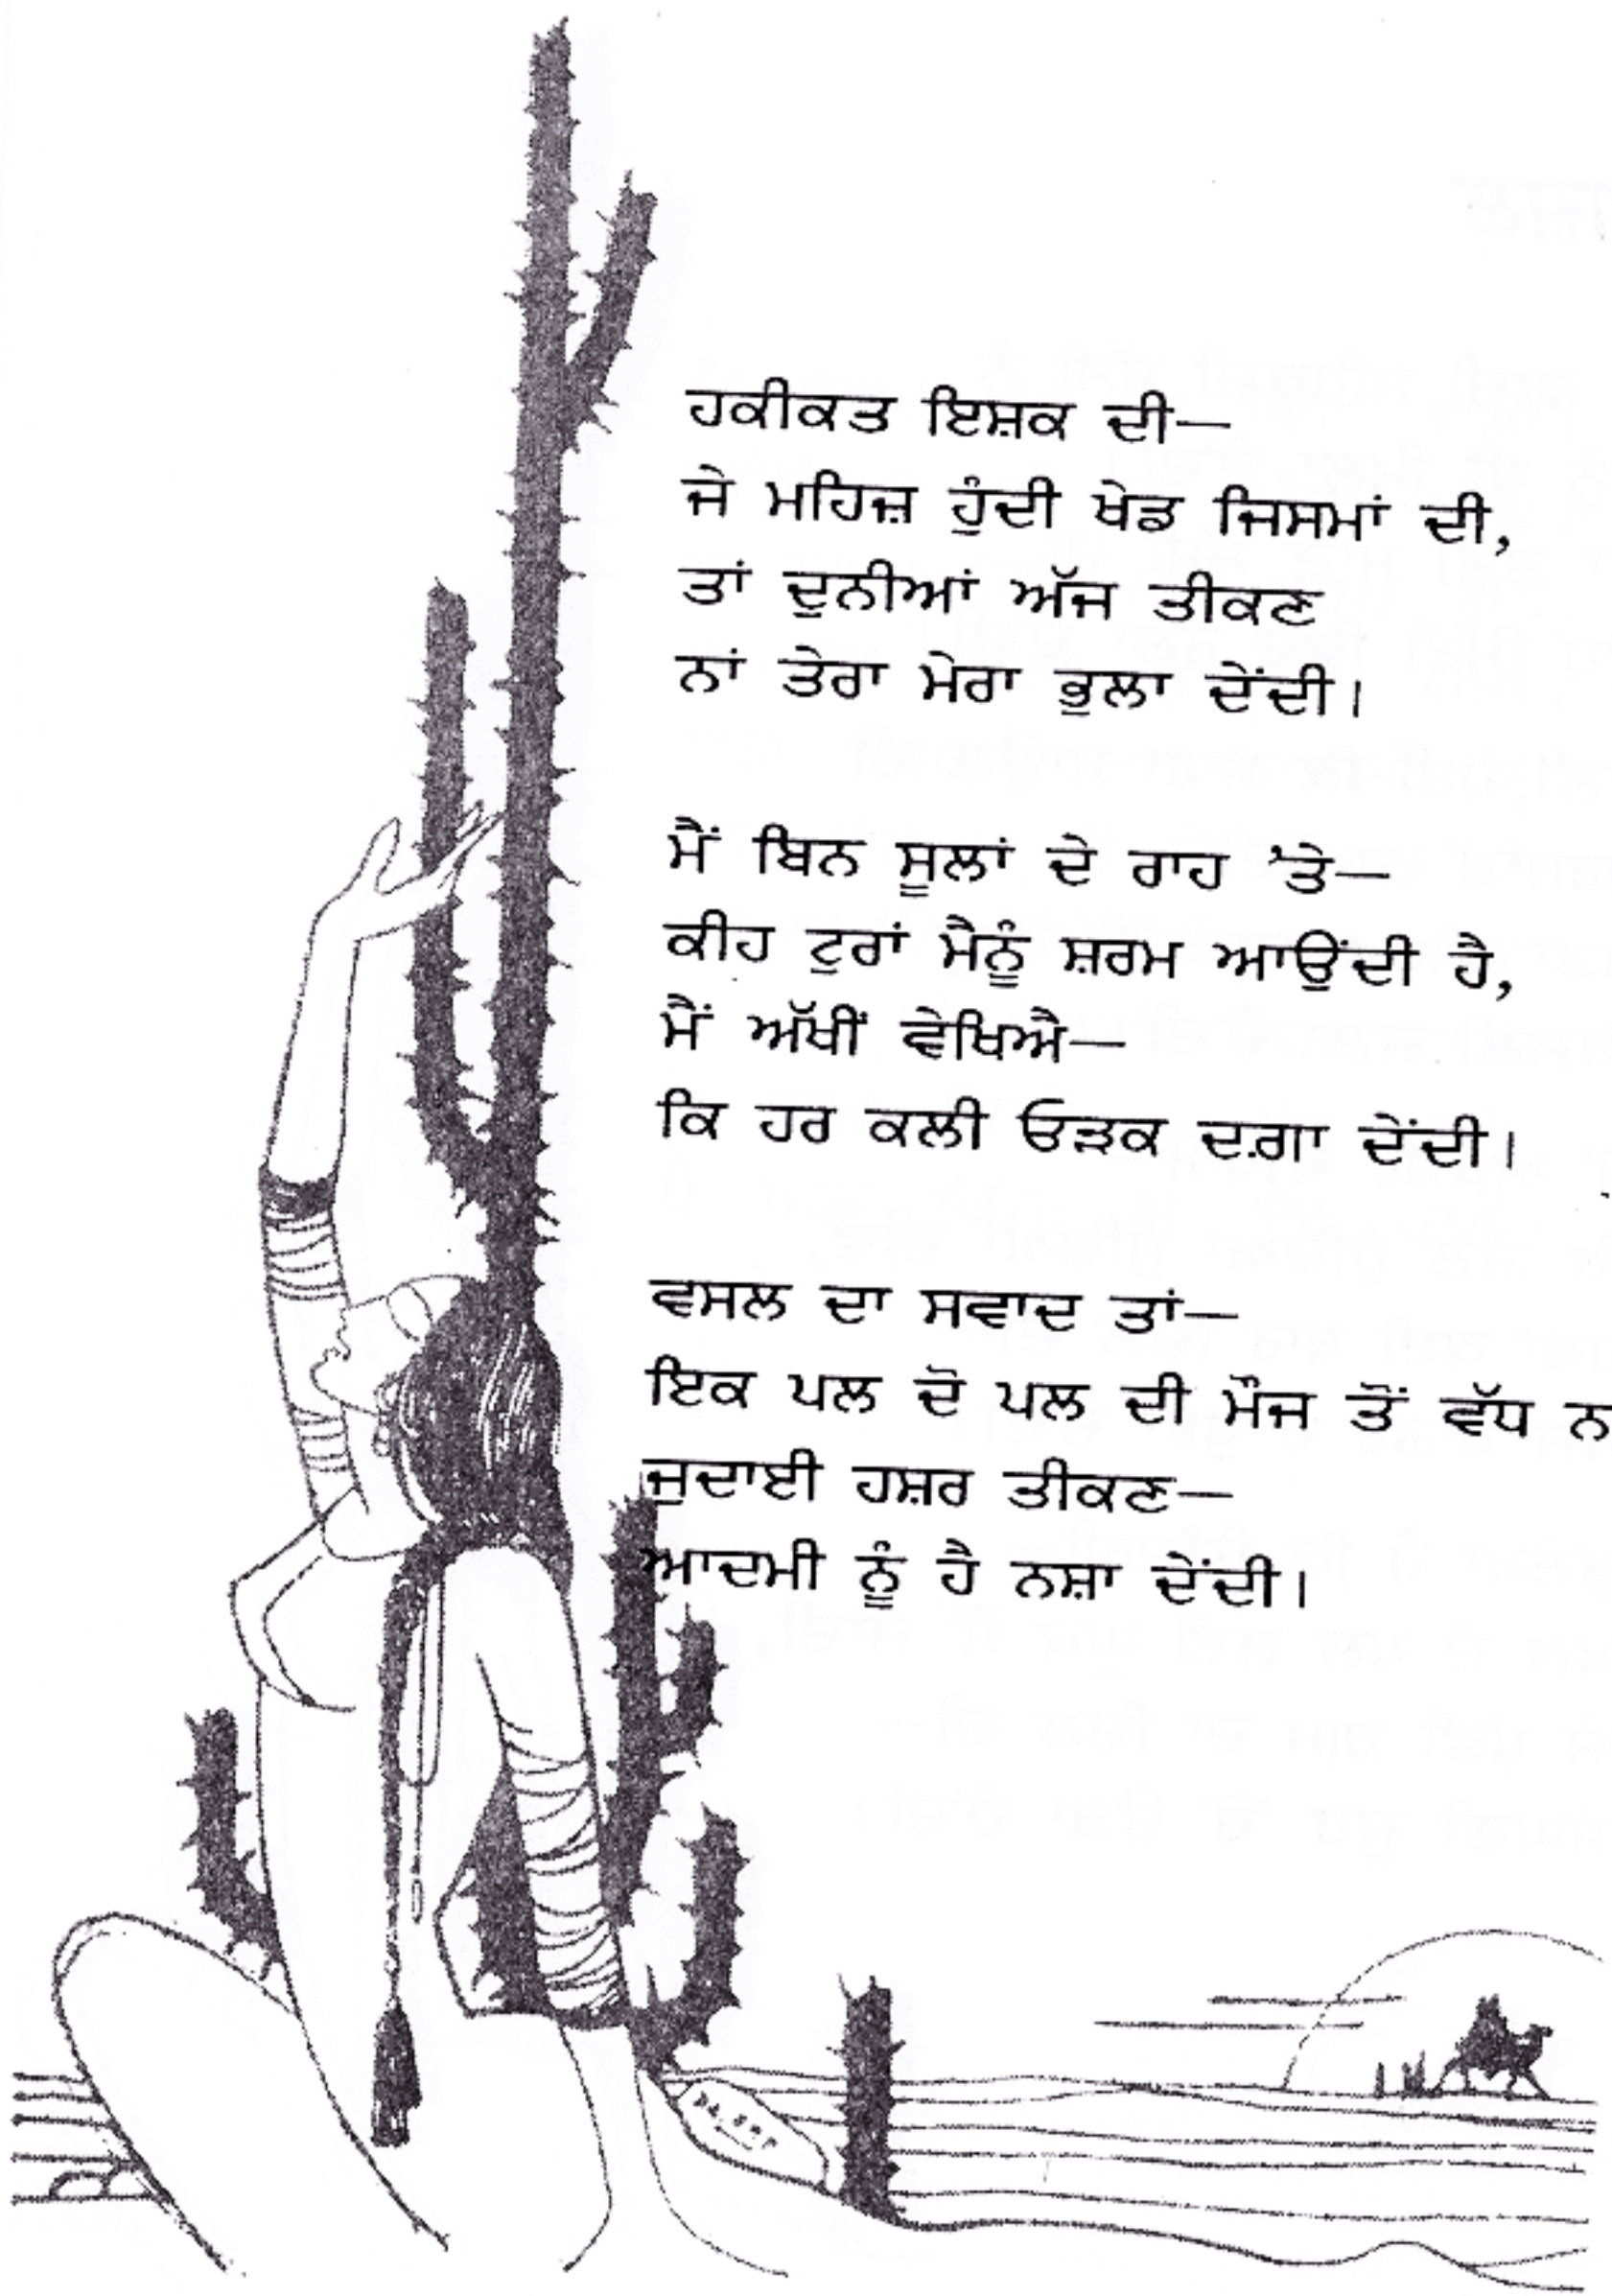 ਹਕੀਕਤ ਇਸ਼ਕ ਦੀ—
ਜੇ ਮਹਿਜ਼ ਹੁੰਦੀ ਖੇਡ ਜਿਸਮਾਂ ਦੀ,
ਤਾਂ ਦੁਨੀਆਂ ਅੱਜ ਤੀਕਣ
ਨਾਂ ਤੇਰਾ ਮੇਰਾ ਭੁਲਾ ਦੇਂਦੀ।
ਮੈਂ ਬਿਨ ਸੂਲਾਂ ਦੇ ਰਾਹ ’ਤੇ—
ਕੀਹ ਟੁਰਾਂ ਮੈਨੂੰ ਸ਼ਰਮ ਆਉਂਦੀ ਹੈ,
ਮੈਂ ਅੱਖੀਂ ਵੇਖਿਐ—
ਕਿ ਹਰ ਕਲੀ ਓੜਕ ਦਗ਼ਾ ਦੇਂਦੀ।
ਵਸਲ ਦਾ ਸਵਾਦ ਤਾਂ—
ਇਕ ਪਲ ਦੋ ਪਲ ਦੀ ਮੌਜ ਤੋਂ ਵੱਧ ਨ
ਜੁਦਾਈ ਹਸ਼ਰ ਤੀਕਣ—
ਆਦਮੀ ਨੂੰ ਹੈ ਨਸ਼ਾ ਦੇਂਦੀ।